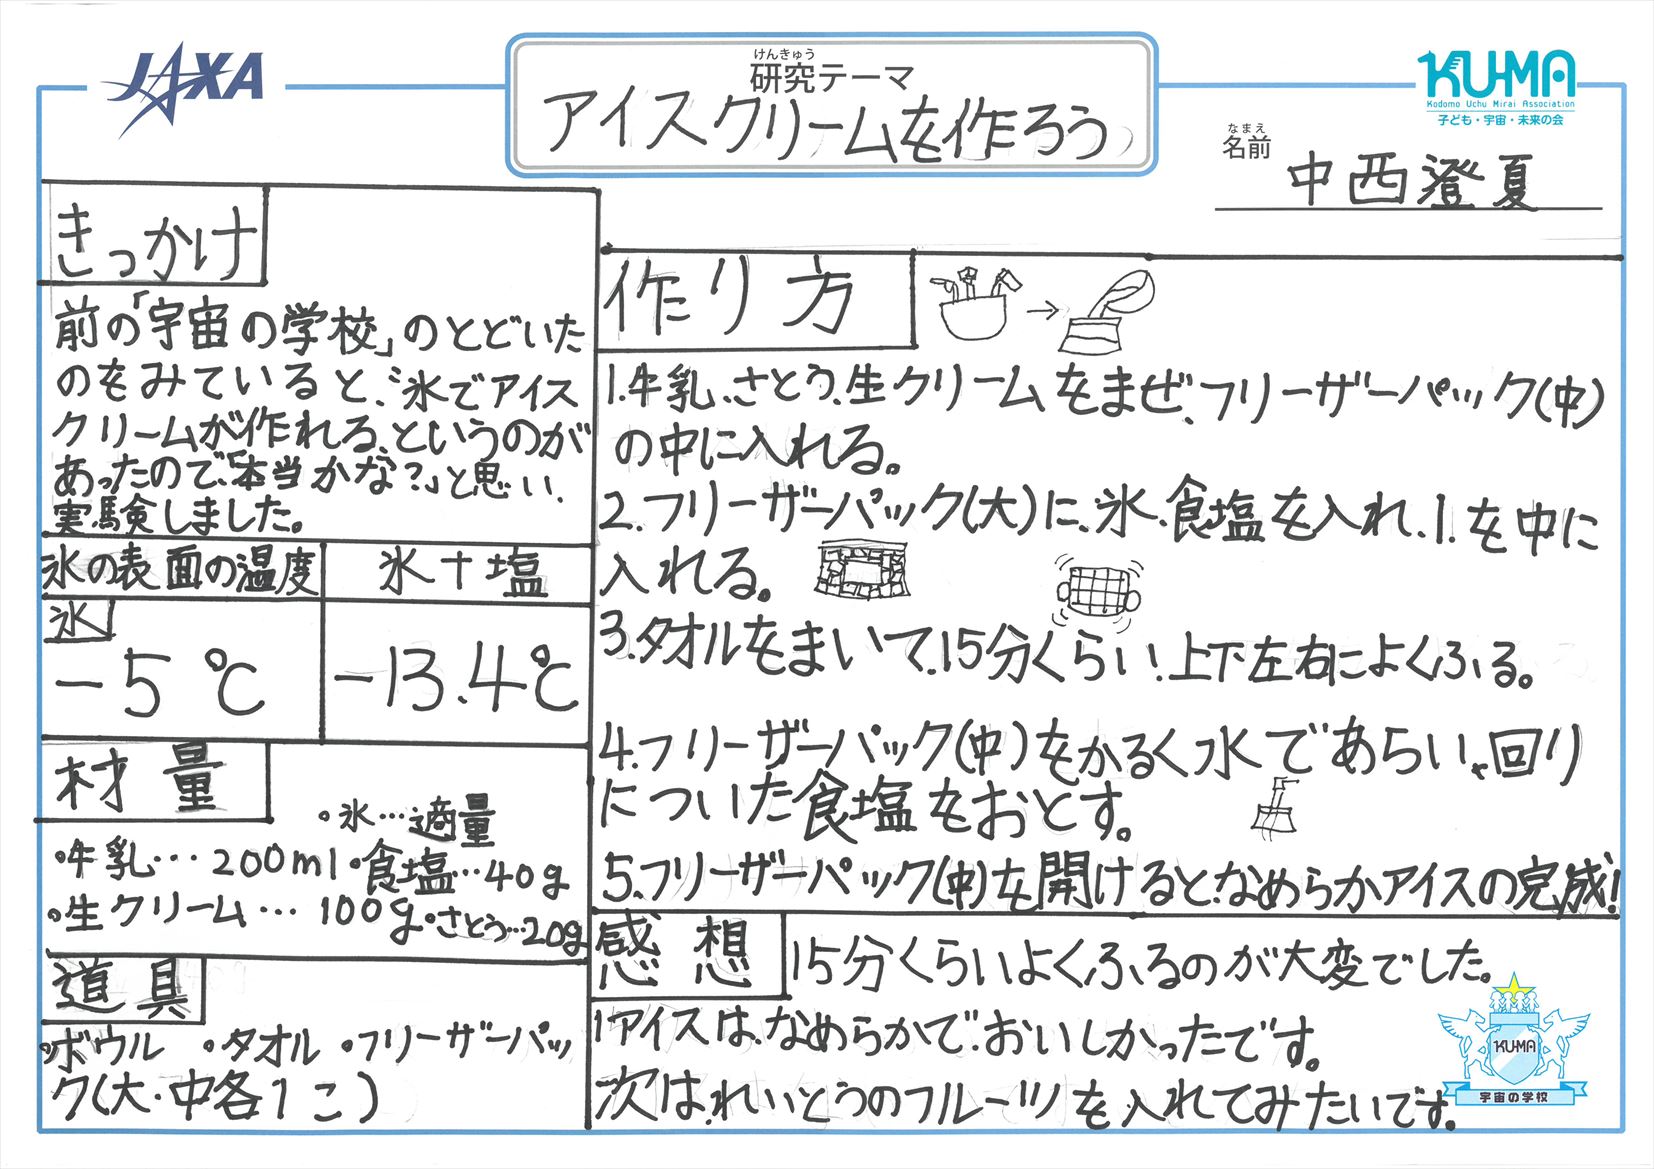 JAXA
けんきゅう
研究テーマ
アイスクリームを作ろう
KU-MA
Kodomo Uchu Mirai Association
子ども・宇宙・未来の会
なまえ
名前
中西澄夏
きっかけ
前の「宇宙の学校」のとどいた
のをみていると、氷でアイス
クリームが作れる、というのが
あったので、「本当かな?」と思い、
実験しました。
氷の表面の温度
氷+塩
氷
-5℃
-13.4℃
材量
・氷…適量
・牛乳…200ml・食塩…40g
・生クリーム…100g・さとう…20g
道具
・ボウル ・タオル ・フリーザーパッ
ク(大・中各1こ)
作り方
1.牛乳、さとう、生クリームをまぜ、フリーザーパック(中)
の中に入れる。
2.フリーザーパック(大)に、氷、食塩を入れ、1.を中に
入れる。
3.タオルをまいて、15分くらい!上下左右によくふる。
4.フリーザーパック(中)をかるく水であらい、回り
についた食塩をおとす。
5.フリーザーパック(中)を開けると、なめらかアイスの完成!
感想
15分くらいよくふるのが大変でした。
アイスは、なめらかで、おいしかったです。
次は、れいとうのフルーツを入れてみたいです。
KU-MA
宇宙の学校